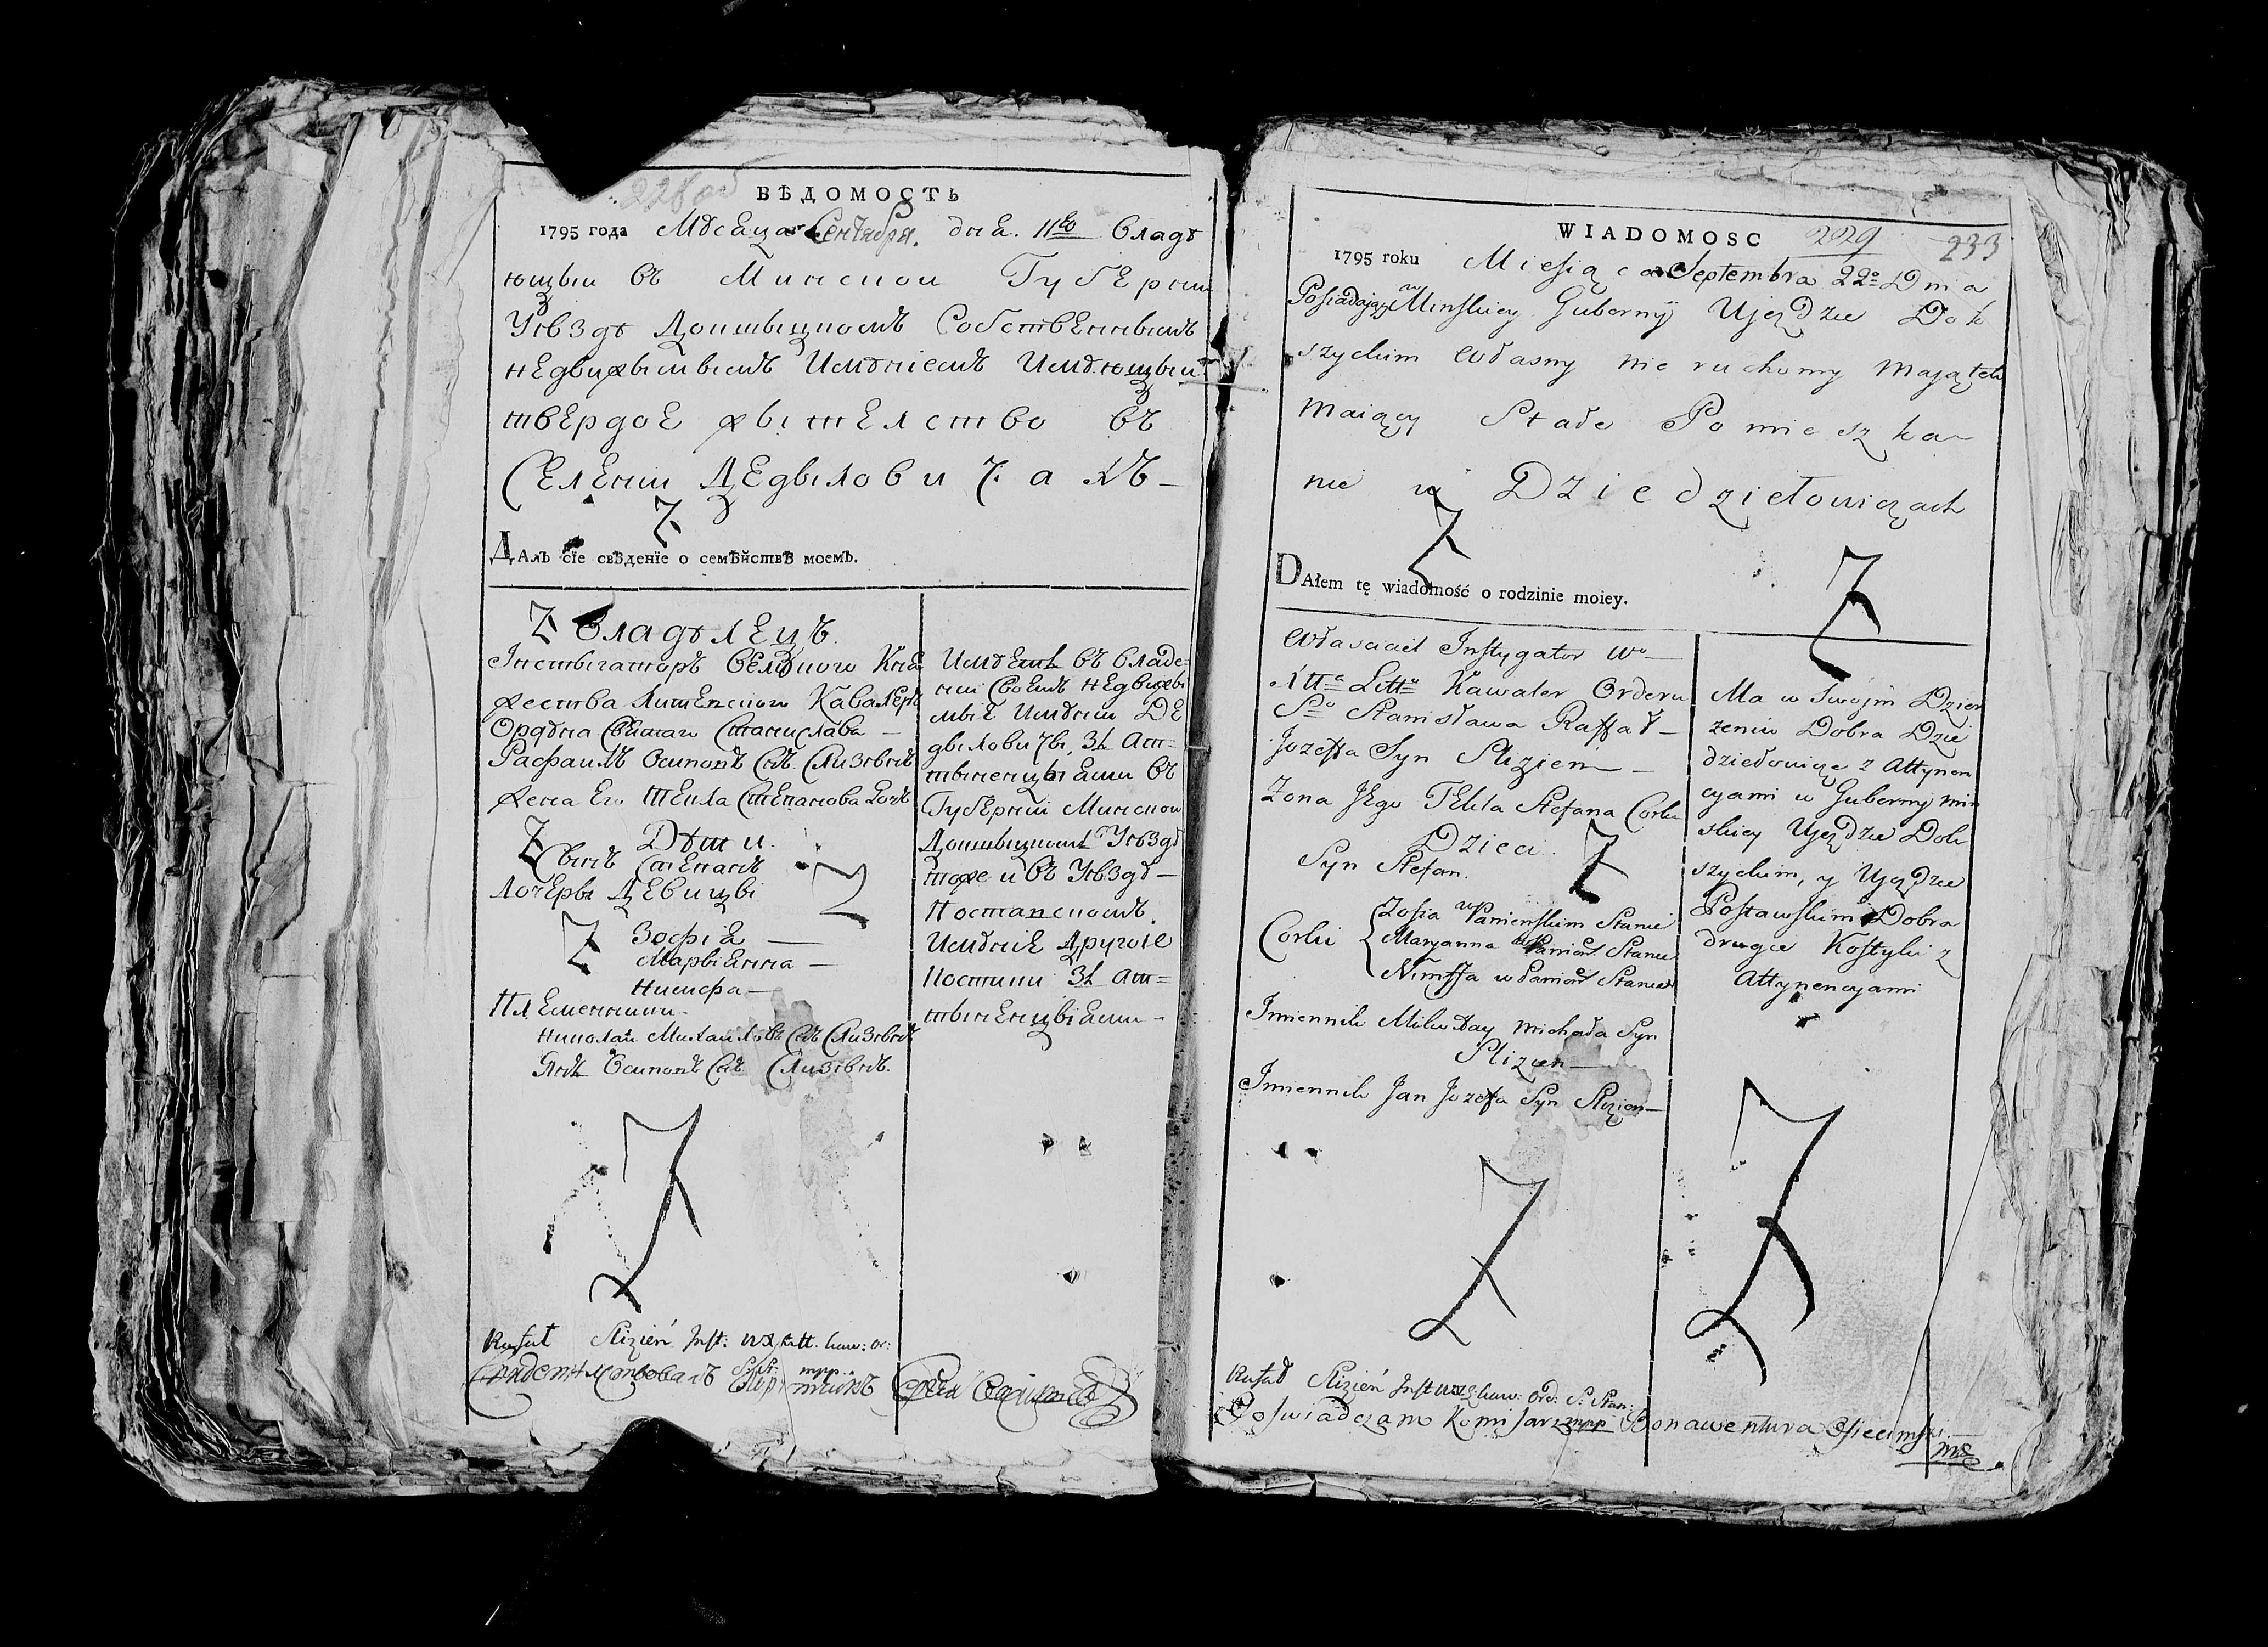 228 об
ВѢДОМОСТЬ
1795 года Мѣсяца Сентября. дня. 11го Владѣ
ющыи въ Минскои Губерни
Уѣзда Докшыцкомъ Собственнымъ
недвижымымъ Имѣніемъ Имѣющыи
твердое жытелство въ
Селении Дедыловичахъ
Далъ сїе свѣденїе о семѣйствѣ моемъ.
Владѣлецъ.
Инстыгаторъ Великого Кня
жества Литевского Кавалеръ
Ордѣна Святаго Станислава
Рафаилъ Осиповъ Снъ. Слизѣнь
Жена Его Текла Степанова Дочь
Дѣти.
Сынъ Степанъ
Дочеры Девицы
Зофія
Марыянна
Нимфа
Племенники
Николаи Михаиловъ Снъ Слизѣнь
Янъ Осиповъ Снъ Слизѣнь.
Имѣетъ въ владе
нии своемъ недвижы
мые Имѣнии Де
дыловичы, зъ Ат=
тыненцыями въ
Губернии Минскои
Докшыцкомъ Уѣздѣ
тоже и въ Уѣздѣ
Поставскомъ.
Имѣніе другоіе
Костики зъ Ат=
тыненцыями
Rafał Slizień Inst: WX Litt. kaw: or:
S. St: mpp
WIADOMOSC 229 233
1795 roku Miesiąca Septembra 22º Dnia
Posiadaiący w Minskiey Guberny Ujezdzie Dok
szyckim własny nie ruchomy maiątek
maiący Stałe Pomieszka
nie w Dziedziełowiczach
DAłem tę wiadomość o rodzinie moiey.
Własciciel Instygator Wº
Xttª Littº Kawaler Orderu
Sº Stanisława Raffał
Jozeffa Syn Slizien
Zona Jego Tekla Stefana Corka
Dzieci.
Syn Stefan.
Corki
Zofia w Panienskim Stanie
Maryanna w Panień Stanie
Nimffa w Panień Stanie
Imiennik Mikołay Michała Syn
Slizien
Imiennik Jan Jozefa Syn Slizien
Ma w Swojm Dzier
zeniu Dobra Dzie
dziełowicze z Attynen
cyami w Guberny Min
skiey Ujezdzie Dok
szyckim, y Ujezdzie
Postawskim Dobra
drugie Kostyki z
Attynencyami
Rafał Slizień Inst WX kaw: Ord: S: Stan:
Poswiadczam Komisarz mpp Bonawentura
mp